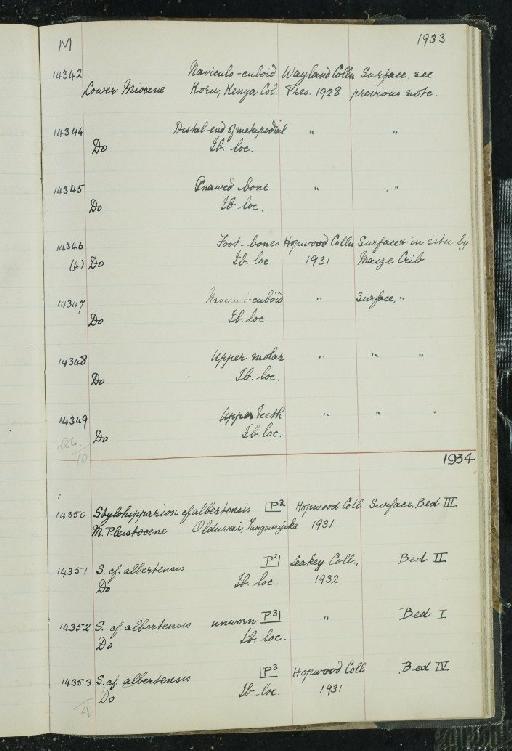 M 1933
14342 Naviculo-cuboid Wayland Colln Surface, see
Lower Miocene Koru, Kenya Col. Pres. 1928 previous note.
14344 Distal end of metapodial " "
Do Ib. loc.
14345 Gnawed bone " "
Do Ib. loc.
14346 Foot-bones Hopwood Colln Surface & in situ by
Do Ib. loc 1931 Maize Crib
14347 Naviculo-cuboid " Surface, "
Do Ib. loc
14348 Upper molar " " "
Do Ib. loc.
14349 Upper teeth " " "
Do Ib. loc.
1934
14350 Stylohipparion cf. albertensis P2 Hopwood Coll Surface, Bed III
M. Pleistocene Olduvai, Tanganyika 1931
14351 S. cf. albertensis Leakey Coll. Bed II
Do Ib. loc 1932
14352 S. cf albertensis unworn P3 " Bed I
Do Ib. loc.
14353 S. cf. albertensis P3 Hopwood Coll Bed IV
Do Ib. loc. 1931